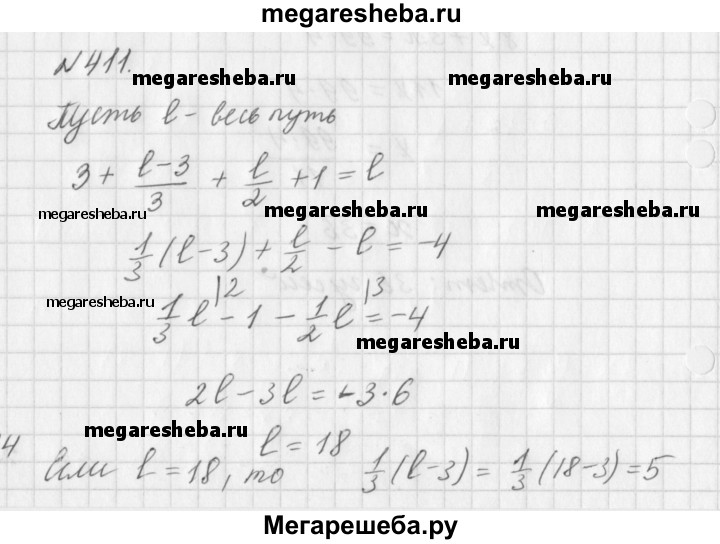 megaresheba.ru
№411.
megaresheba.ru megaresheba.ru
Пусть l – весь путь
3 + (l-3)/3 + l/2 + 1 = l
megaresheba.ru megaresheba.ru megaresheba.ru
1/3 (l-3) + l/2 - l = -4
megaresheba.ru
1/3 l |2 - 1 - 1/2 l |3 = -4
megaresheba.ru
2l - 3l = -3·6
megaresheba.ru
l = 18
4 Если l = 18, то 1/3 (l-3) = 1/3 (18-3) = 5
Мегарешеба.ру